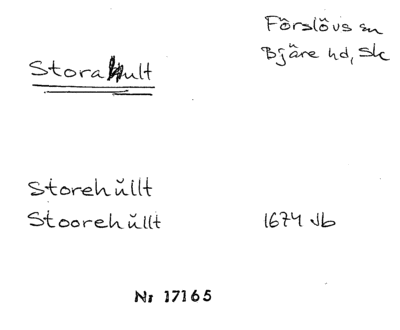 Förslövs sn
Bjäre hd, Sk
Stora hult
Storehŭllt
Stoorehŭllt 1674 Jb
Nr 17165